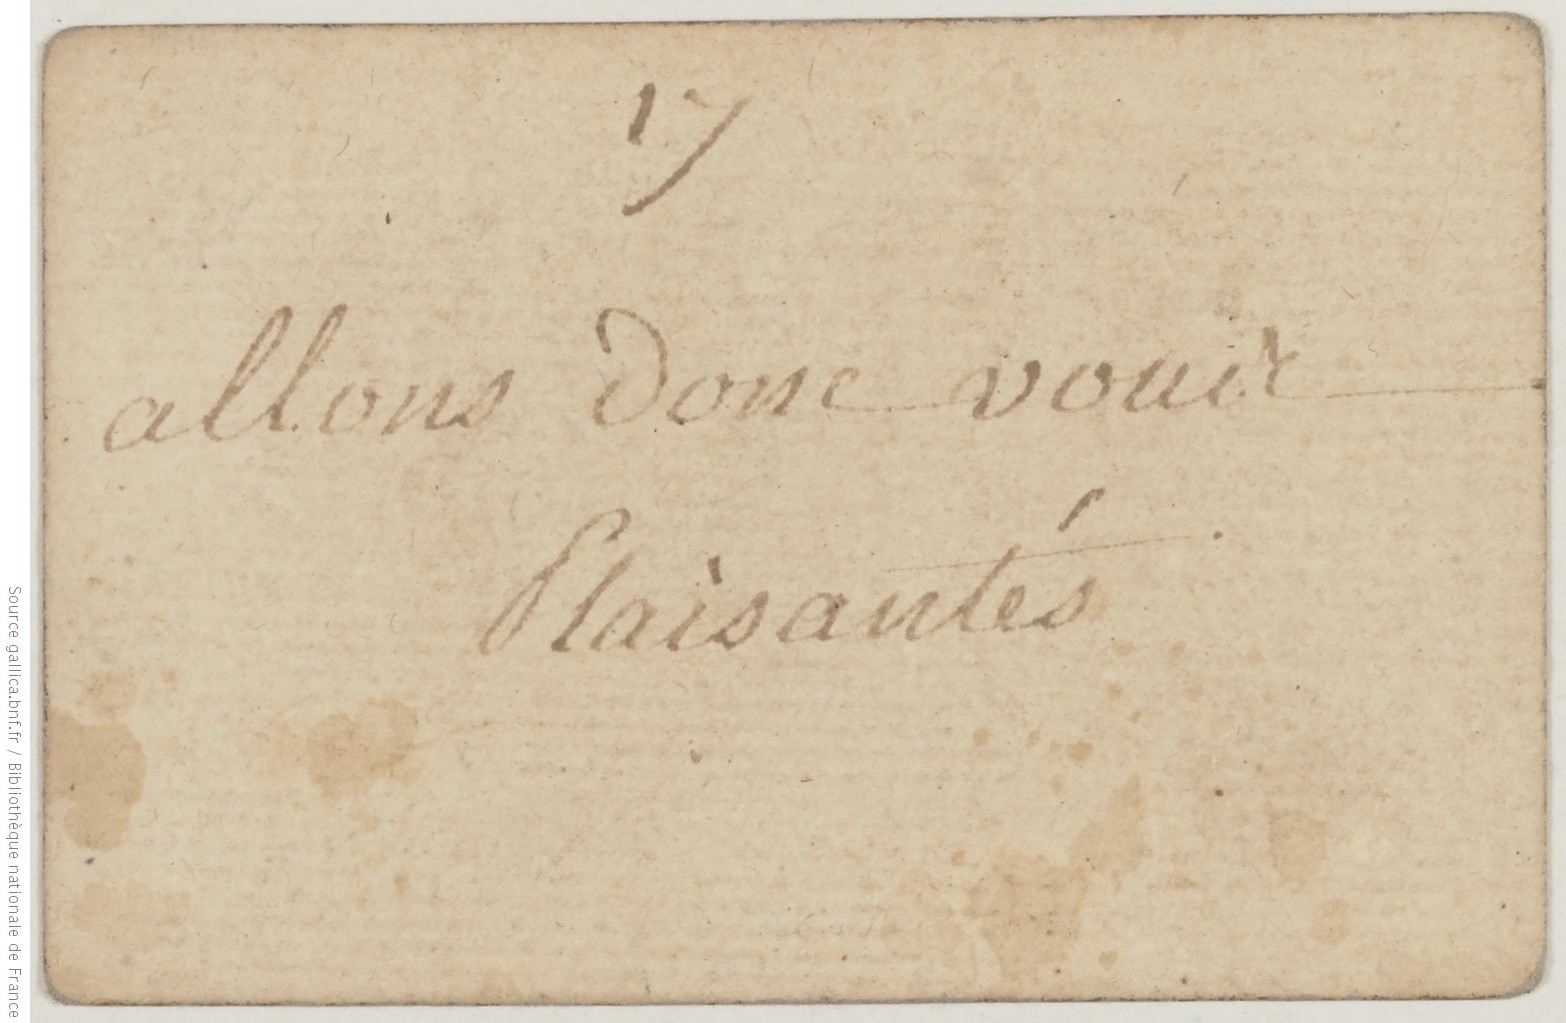 17
allons donc vouir
Plaisantés
Source gallica.bnf.fr / Bibliothèque nationale de France